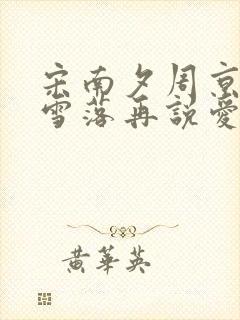 宋南夕周京
雪落再說愛
黃華英